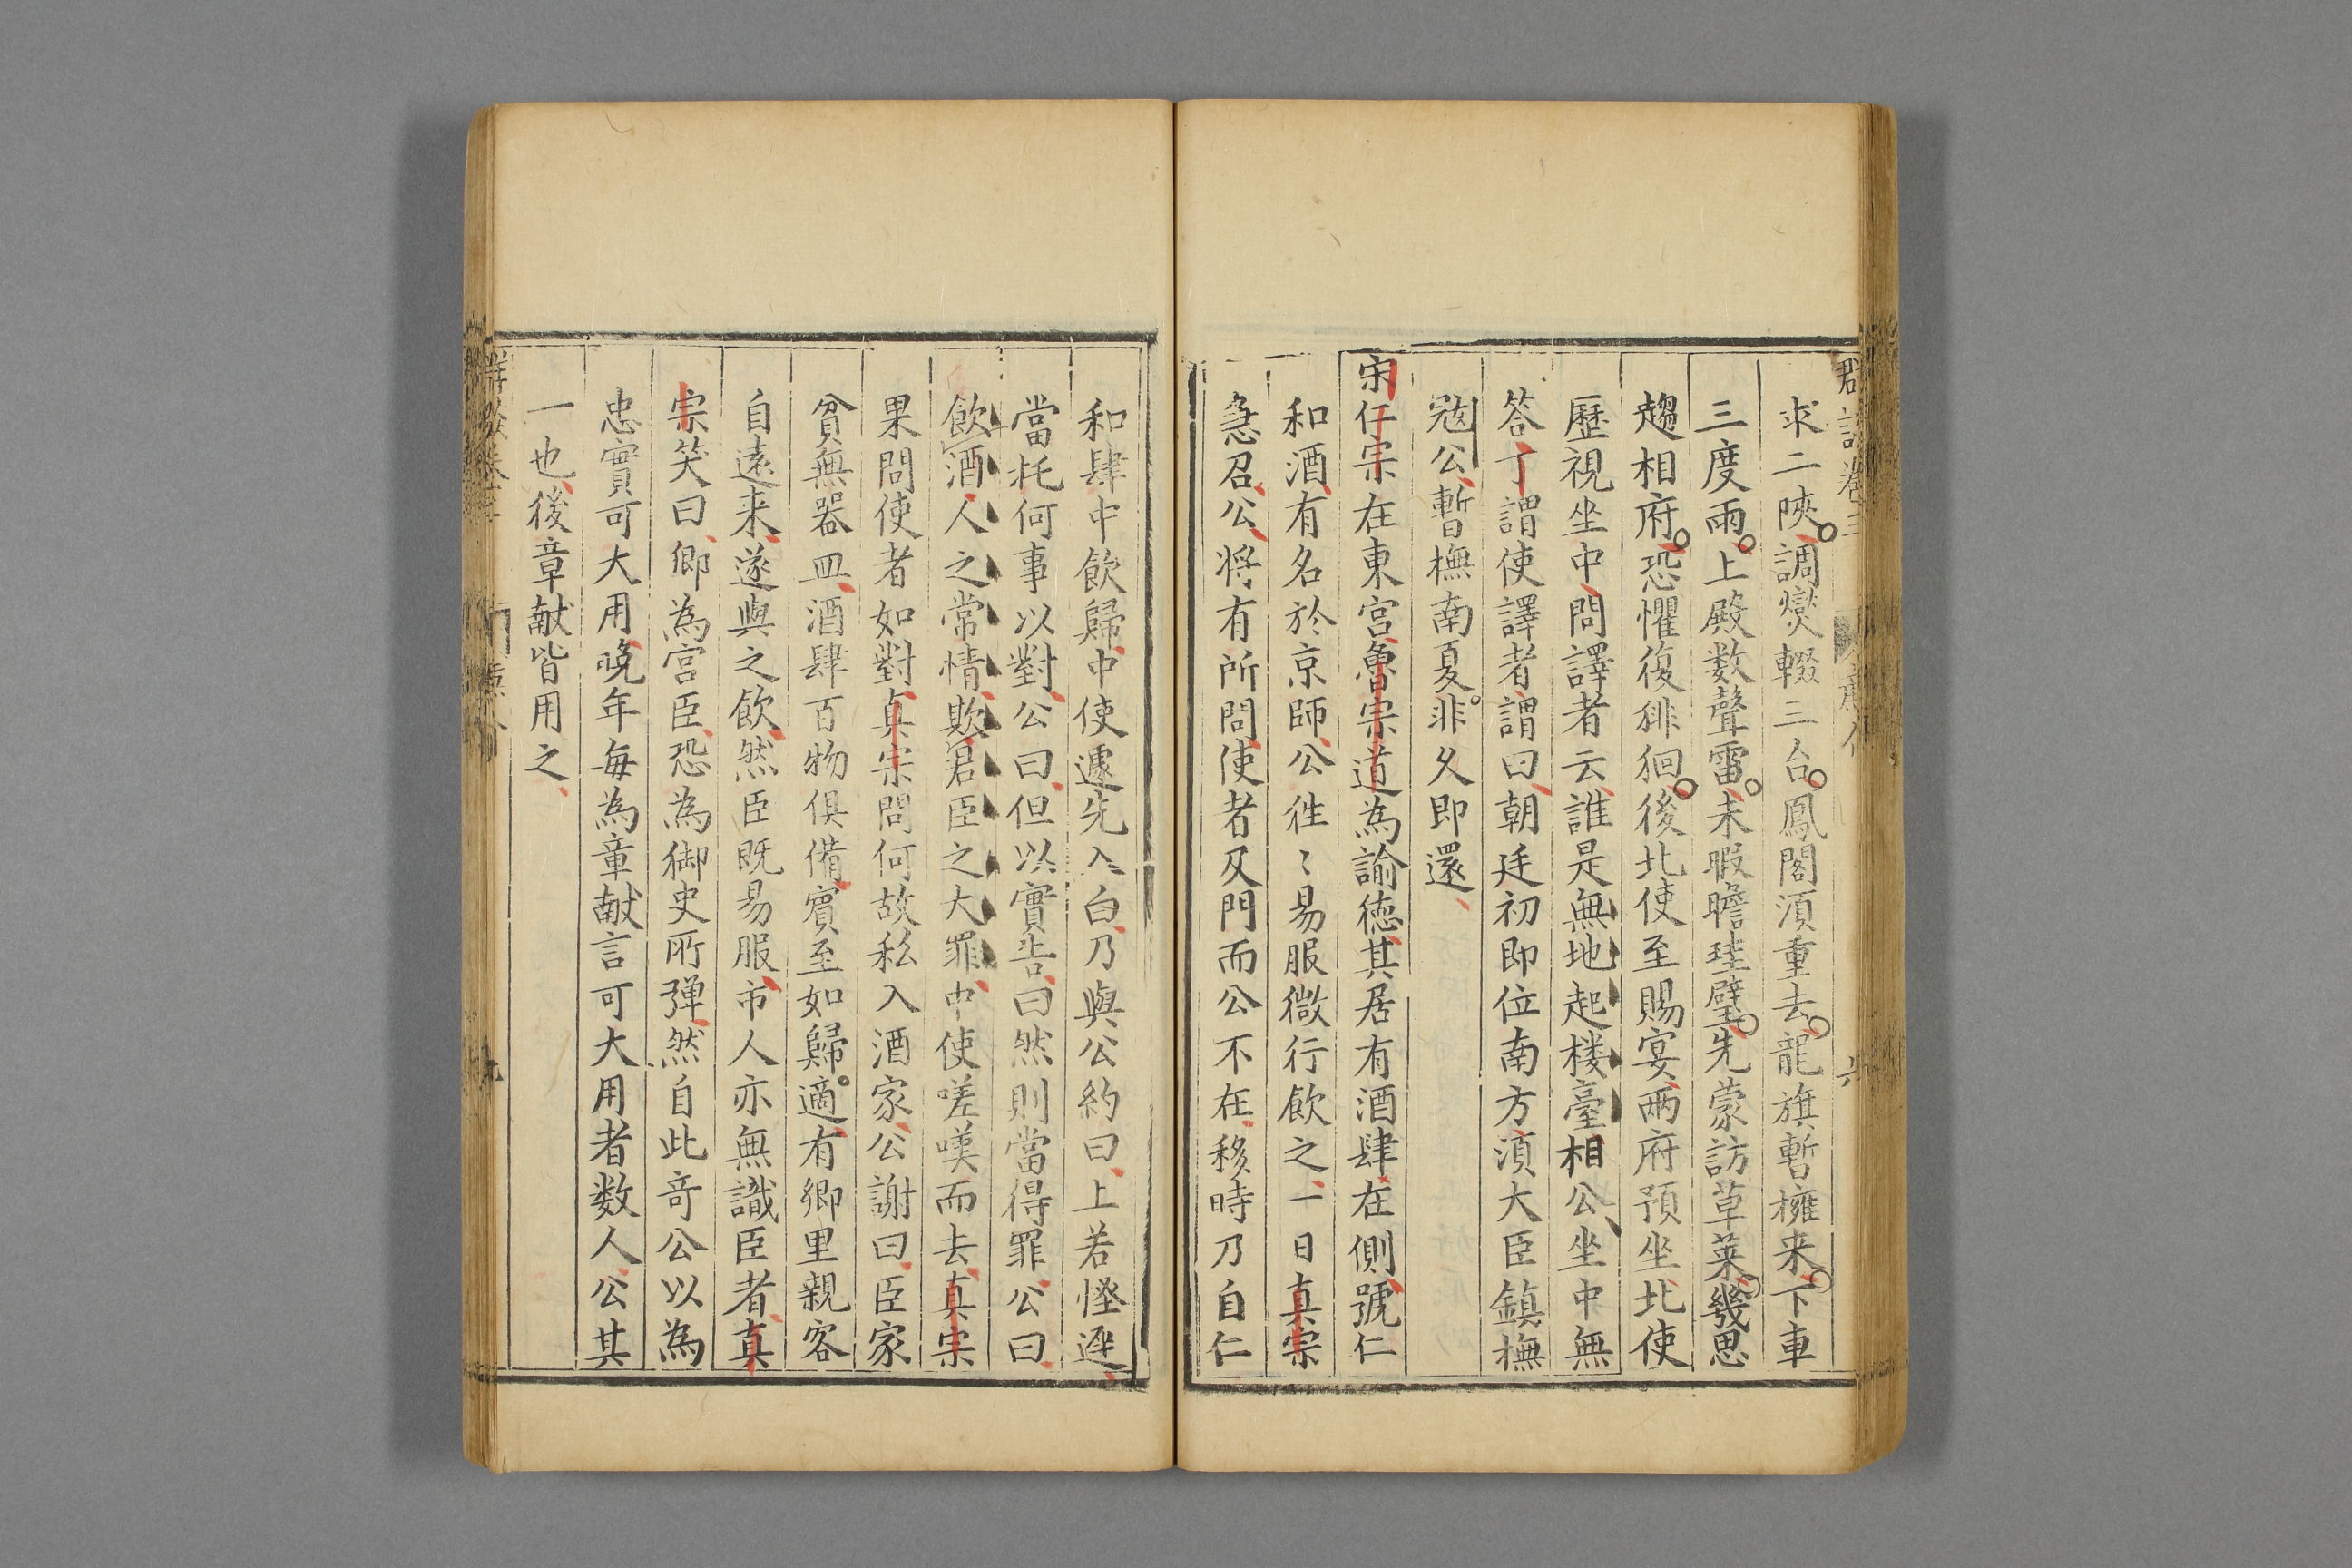 求二陝調燮輟三台鳳閣湏重去龍旗暫擁来下車
三度雨上殿数聲雷未暇瞻珪璧先蒙訪草莱幾思
趨相府恐懼復徘徊後北使至賜宴兩府預坐北使
歷視坐中問譯者云誰是無地起楼臺相公坐中無
答丁謂使譯者謂曰朝廷初即位南方湏大臣鎮撫
寇公暫撫南夏非久即還
宋仁宗在東宮魯宗道為諭徳其居有酒肆在側號仁
和酒有名於京師公徃〻易服微行飲之一日真宗
急召公将有所問使者及門而公不在移時乃自仁
和肆中飲歸中使遽先入白乃與公約曰上若怪遲
當托何事以對公曰但以實告曰然則當得罪公曰
飲酒人之常情欺君臣之大罪中使嗟嘆而去真宗
果問使者如對真宗問何故私入酒家公謝曰臣家
貧無器皿酒肆百物俱備賓至如歸適有鄉里親客
自遠来遂與之飲然臣既易服市人亦無識臣者真
宗笑曰卿為宮臣恐為御史所弹然自此奇公以為
忠實可大用晚年每為章献言可大用者数人公其
一也後章献皆用之